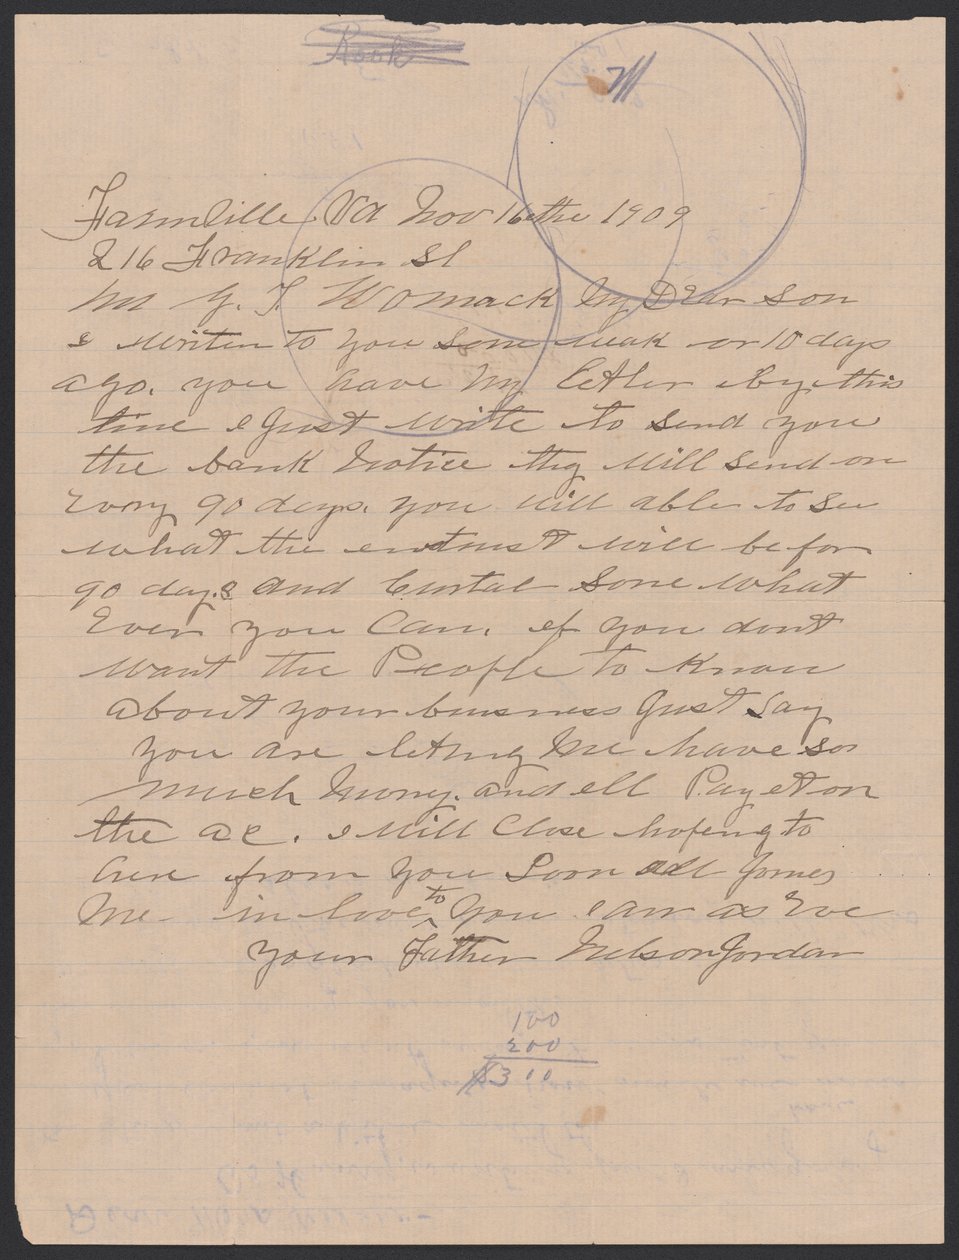 Rook
M
Farmville Va Nov 16the 1909
216 Franklin St
Mr G. T. Womack My Dear Son
I writen to you some weak or 10 days
ago. you have My letter by this
time I Just write to send you
the bank Notice thy will send on
Every 90 days. you will able to see
what the entrust will be for
90 days and Curtal some what
Ever you Can. if you dont
want the People to know
about your buisness Just say
you are leting Me have so
much Mony. and ell Pay et on
the ac. I will Close hopeng to
here from you Soon all Jornes
Me - in love to you I am as Eve
your Father Nelson Jordan
100
200
$300